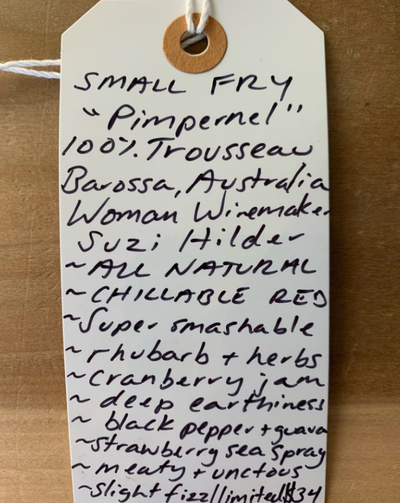 SMALL FRY
"Pimpernel"
100% Trousseau
Barossa, Australia
Woman Winemaker
Suzi Hilder
~ALL NATURAL
~CHILLABLE RED
~Super smashable
~rhubarb + herbs
~cranberry jam
~deep earthiness
~black pepper + guava
~strawberry sea spray
~meaty + unctous
~slight fizz/limited/$34